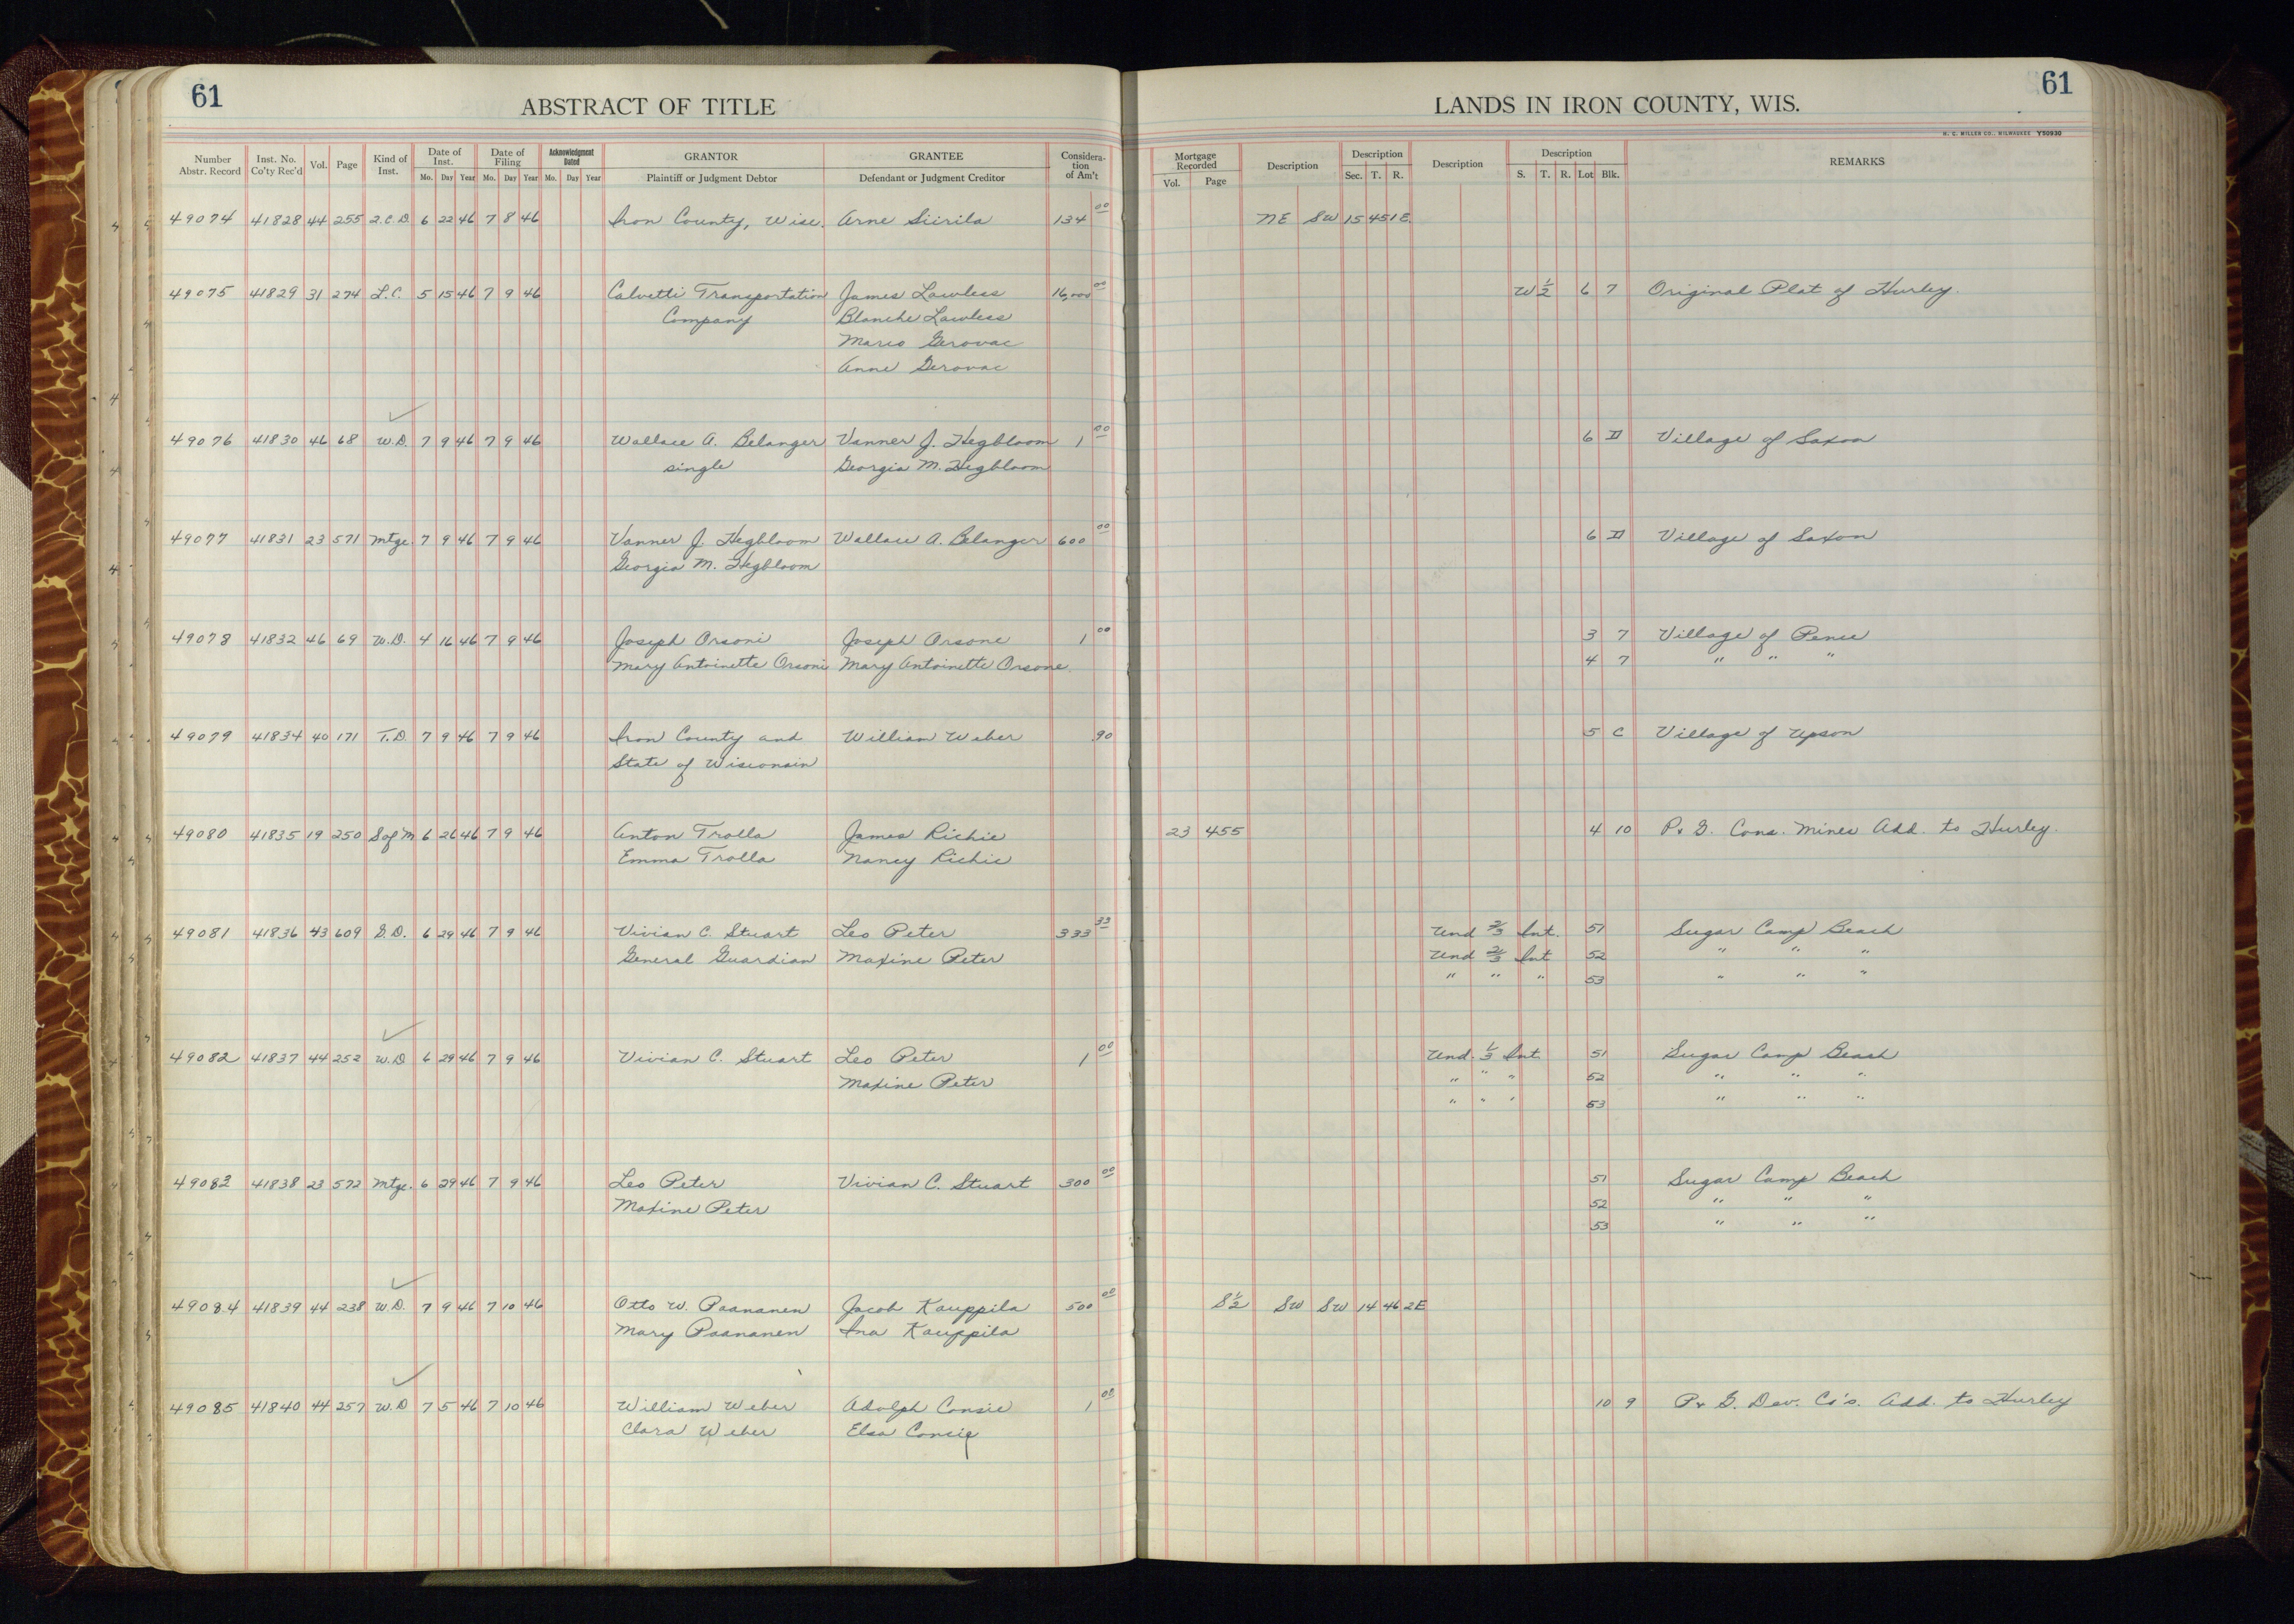 61
ABSTRACT OF TITLE
Number Abstr. Record Inst. No. Co'ty Rec'd Vol. Page Kind of Inst. Date of Inst. Mo. Day Year Date of Filing Mo. Day Year Acknowledgment Dated Mo. Day Year GRANTOR Plaintiff or Judgment Debtor GRANTEE Defendant or Judgment Creditor Considera- tion of Am't
49074 41828 44 255 2.C.D. 6 22 46 7 8 46 Iron County, Wisc. Arne Siirila 134 00
49075 41829 31 274 L.C. 5 15 46 7 9 46 Calvetti Transportation James Lawless 16,000 00
Company Blanche Lawless
Marco Gerovac
Anne Gerovac
49076 41830 46 68 W.D. 7 9 46 7 9 46 Wallace A. Belanger Vanner J. Hegbloom 1 00
single Georgia M. Hegbloom
49077 41831 23 571 Mtge. 7 9 46 7 9 46 Vanner J. Hegbloom Wallace A. Belanger 600 00
Georgia M. Hegbloom
49078 41832 46 69 W.D. 4 16 46 7 9 46 Joseph Orsoni Joseph Orsone 1 00
Mary Antoinette Orsoni Mary Antoinette Orsone
49079 41834 40 171 T.D. 7 9 46 7 9 46 Iron County and William Weber .90
State of Wisconsin
49080 41835 19 250 S of M 6 26 46 7 9 46 Anton Trolla James Richie
Emma Trolla Nancy Richie
49081 41836 43 609 G.D. 6 29 46 7 9 46 Vivian C. Stuart Leo Peter 333 33
General Guardian Maxine Peter
49082 41837 44 252 W.D 6 29 46 7 9 46 Vivian C. Stuart Leo Peter 1 00
Maxine Peter
49083 41838 23 572 Mtge. 6 29 46 7 9 46 Leo Peter Vivian C. Stuart 300 00
Maxine Peter
49084 41839 44 238 W.D. 7 9 46 7 10 46 Otto W. Paananen Jacob Kauppila 500 00
Mary Paananen Ina Kauppila
49085 41840 44 257 W.D 7 5 46 7 10 46 William Weber Adolph Consie 1 00
Clara Weber Elsa Consie
61
LANDS IN IRON COUNTY, WIS.
H. C. MILLER CO., MILWAUKEE Y50930
Mortgage Recorded Vol. Page Description Description Sec. T. R. Description Description S. T. R. Lot Blk. REMARKS
NE SW 15 45 1E.
W 1/2 6 7 Original Plat of Hurley.
6 II Village of Saxon
6 II Village of Saxon
3 7 Village of Pence
4 7 " " "
5 C Village of Upson
23 455 4 10 P. & G. Cons. Mines Add. to Hurley.
Und 2/3 Int. 51 Sugar Camp Beach
Und 2/3 Int 52 " " "
" " " 53 " " "
Und. 1/3 Int 51 Sugar Camp Beach
" " " 52 " " "
" " " 53 " " "
51 Sugar Camp Beach
52 " " "
53 " " "
S 1/2 SW SW 14 46 2E
10 9 P. & G. Dev. Co's. Add. to Hurley